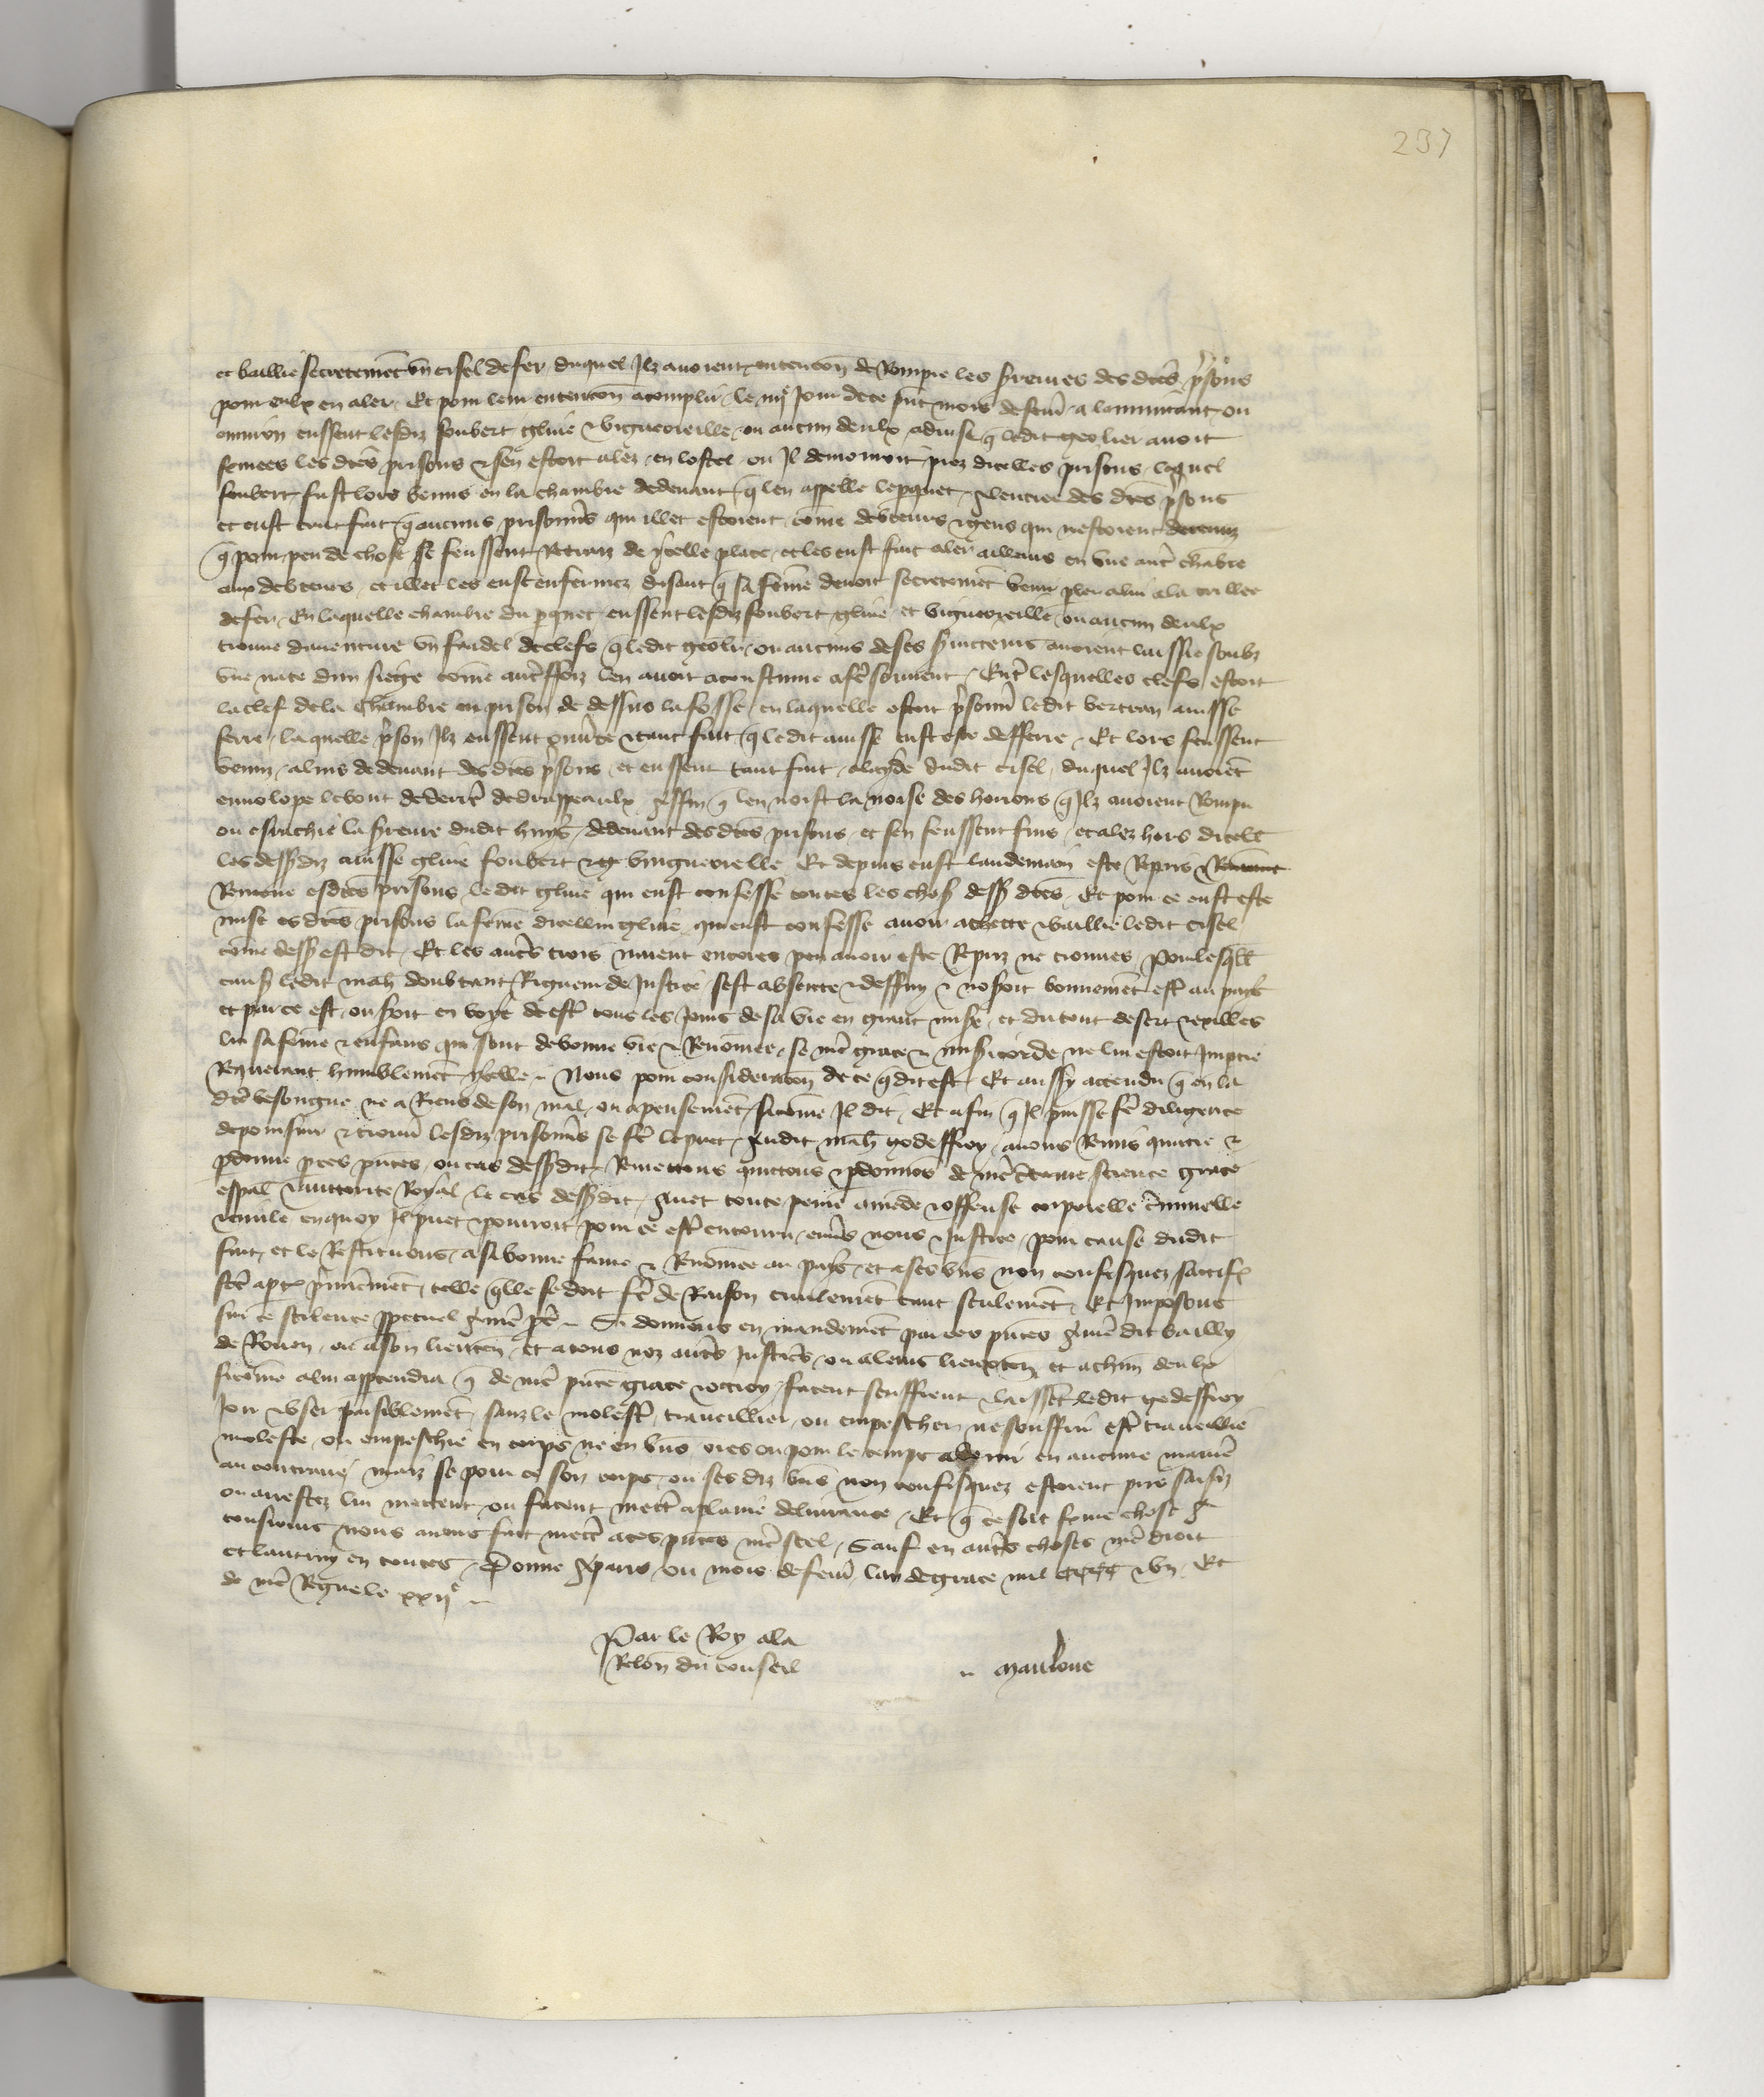 237
et baillié secretemēt un cisel de fer duquel Ilz avoient entencōn de Rompre les serreures des dc̄es prisōns
pour eulx en aler Et pour leur entencōn acomplir le iiijᵉ Jour de ce pn̄t mois de fevrier a lanuitant ou
environ eussent lesdiz foubert glvie et vigneoreille ou aucun deulx advisé q̄ ledit geolier avoit
fermees les dc̄es prisons et sen estoit alez en lostel ou Il demouroit prez dicelles prisons lequel
foubert fust lors venus en la chambre dedevant q̄ len appelle le pquet a lentree des dc̄es prisons
et eust tant fait q̄ aucuns prisonn̄s qui illec estoient cōme debteurs et gens qui nestoient detenuz
q̄ pour peu de chose se feussent Retraiz de ycelle place et les eust fait aler ailleurs en une autr̄ chābre
aux debteurs et illec les eust enfermez disant q̄ sa fēme devoit secretemēt venir pler a lui a la treillee
de fer En laquelle chambre du pquet eussent lesdiz foubert glvie et vigneoreille ou aucun deulx
trouvé daventure un fardel de clefs q̄ ledit geolier ou aucuns de ses serviteurs avoient laissié soubz
une nate dun siege cōme autr̄ffoiz len avoit acoustumé a fē souvent Entr̄ lesquelles clefs estoit
la clef de la chambre ou prison de dessus la fosse en laquelle estoit prisonn̄ ledit bertran ausse
ferre laquelle prison Ilz eussent ouvte et tant fait q̄ ledit ausse eust esté defferré Et lors feussent
venuz a luis dedevant des dc̄es prisons et eussent tant fait a layde dudit cisel duquel Ilz avoiēt
envelopé le bout de drappeaulx affin q̄ len noist la noise des horions q̄ Ilz avoient Rompu
ou esrachié la serreure dudit huys dedevant des dc̄es prisons et sen feussent fuis et alez hors dicelles
les dessusdiz ausse glvie foubert et vigneoreille Et depuis eust landemain esté Repris et
Remené esdc̄es prisons ledit glvie qui eust confessé toutes les choses dessus dc̄es Et pour ce eust esté
mise es dc̄es prisons la fēme dicellui glvie qui eust confessé avoir acheté et baillié ledit cisel
cōme dessus est dit Et les autr̄s trois naient encores peu avoir esté Repriz ne trouvez Pour lesq̄lles
causes ledit mah̄ doubtant Rigueur de Justice sest absenté et deffuy et noseroit bonnemēt estr̄ au pays
et par ce est ou seroit en voye de estr̄ tous les Jours de sa vie en grant misē et du tout desert et exilles
lui sa fēme et enfans qui sont de bonne vie et Renōmee se nr̄e grace et miseicorde ne lui estoit Impartie
Requerant humblemēt ycelle Nous pour consideracōn de ce q̄ dit est Et aussy attendu q̄ en la
dc̄e besongne ne a Riens de son mal ou apensemēt sicōme Il dit Et afin q̄ Il puisse fē diligence
de poursuir et trouver lesdiz prisonn̄s se fē le puet audit mah̄ godeffroy avons Remis quittié et
pdonné p ces pn̄tes ou cas dessusdit Remettons quittons et pdonnōs de nr̄e certaine science grace
esp̄al et auctorité Royal le cas dessusdit avec toute peine amēde et offense corporelle crīminelle
et civile en quoy Il puet et pouroit pour ce estr̄ encouru envers nous et Justice pour cause dudit
fait et le Restituons a sa bonne fame et Renōmee au pays et a ses biens non confisquez satisfac̄
fc̄e a ptie premieremēt telle q̄lle se doit fē de Raison civilemēt tant seulemēt Et Imposons
sur ce scilence perpetuel a nr̄e pc̄ Si donnons en mandemēt par ces pn̄tes a nr̄e dit bailly
de Rouen ou a son lieuten̄ et a tous noz autr̄s Justiciers ou a leurs lieuxten̄ et a chūn deulx
sicōme a lui apptendra q̄ de nr̄e pn̄te grace et octroy facent seuffrent et laissent ledit godeffroy
Joir et user paisiblemēt sanz le molestr̄ traveillier ou empeschier ne souffrir estr̄ traveillié
molesté ou empeschié en corps ne en biens ores ou pour le temps avenir en aucune maniē
au contraire maiz se pour ce son corps ou ses diz biens non confisquez estoient pris saisiz
ou arrestez lui mettent ou facent mettr̄ a plaine delivrance Et q̄ ce soit ferme chose et
tousiours nous avons fait mettr̄ a ces pn̄tes nr̄e seel Sauf en autr̄s choses nr̄e droit
et lautruy en toutes Donné a paris ou mois de fevrier lan de grace mil cccc et un Et
de nr̄e Regne le xxijᵉ
Par le Roy a la
Relōn du conseil
Mauloue